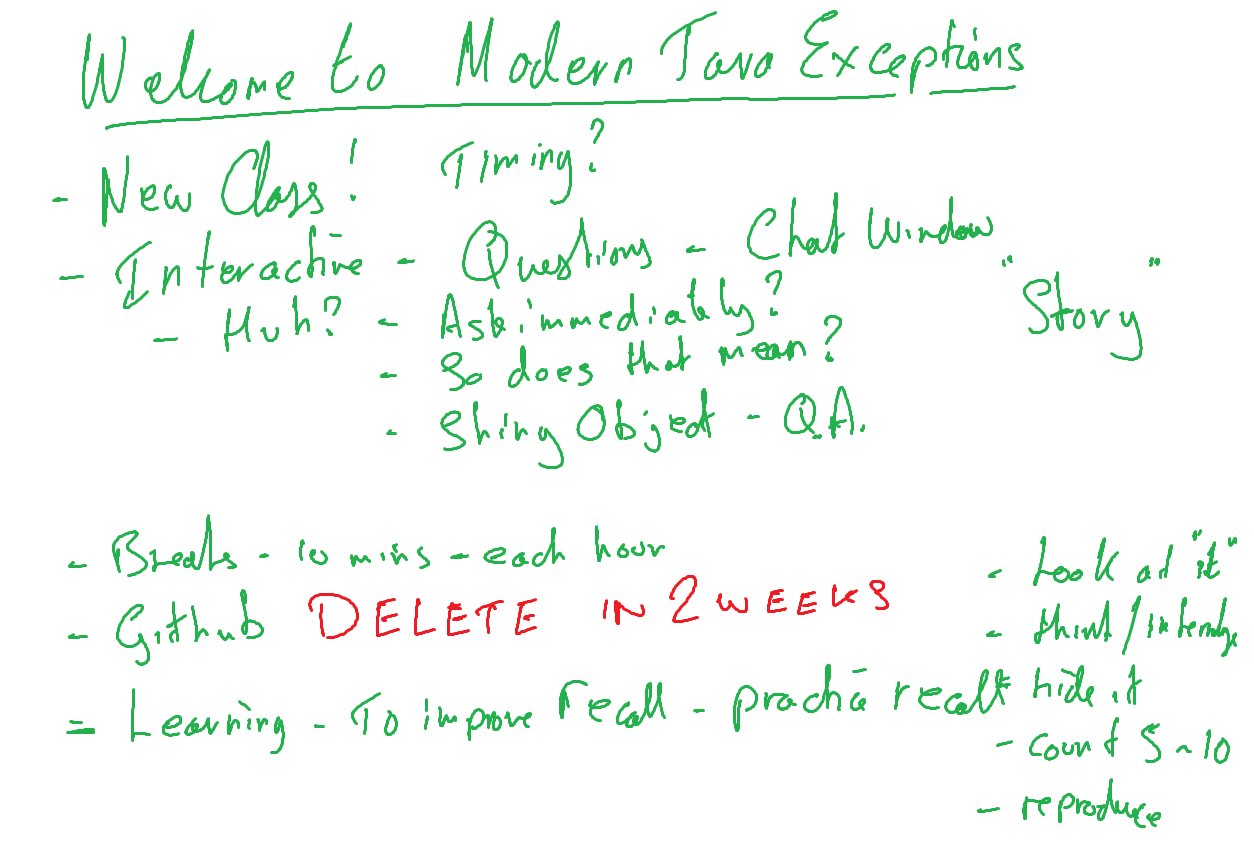 Welcome to Modern Java Exceptions
- New Class! Timing?
- Interactive - Questions - Chat Window
"Story"
- Huh? - Ask immediately?
- So does that mean?
- Shiny Object - Q.A.
- Breaks - 10 mins - each hour
- Github DELETE IN 2 WEEKS
= Learning - To improve recall - practice recall
- Look at "it"
- think/
- hide it
- count 5-10
- reproduce